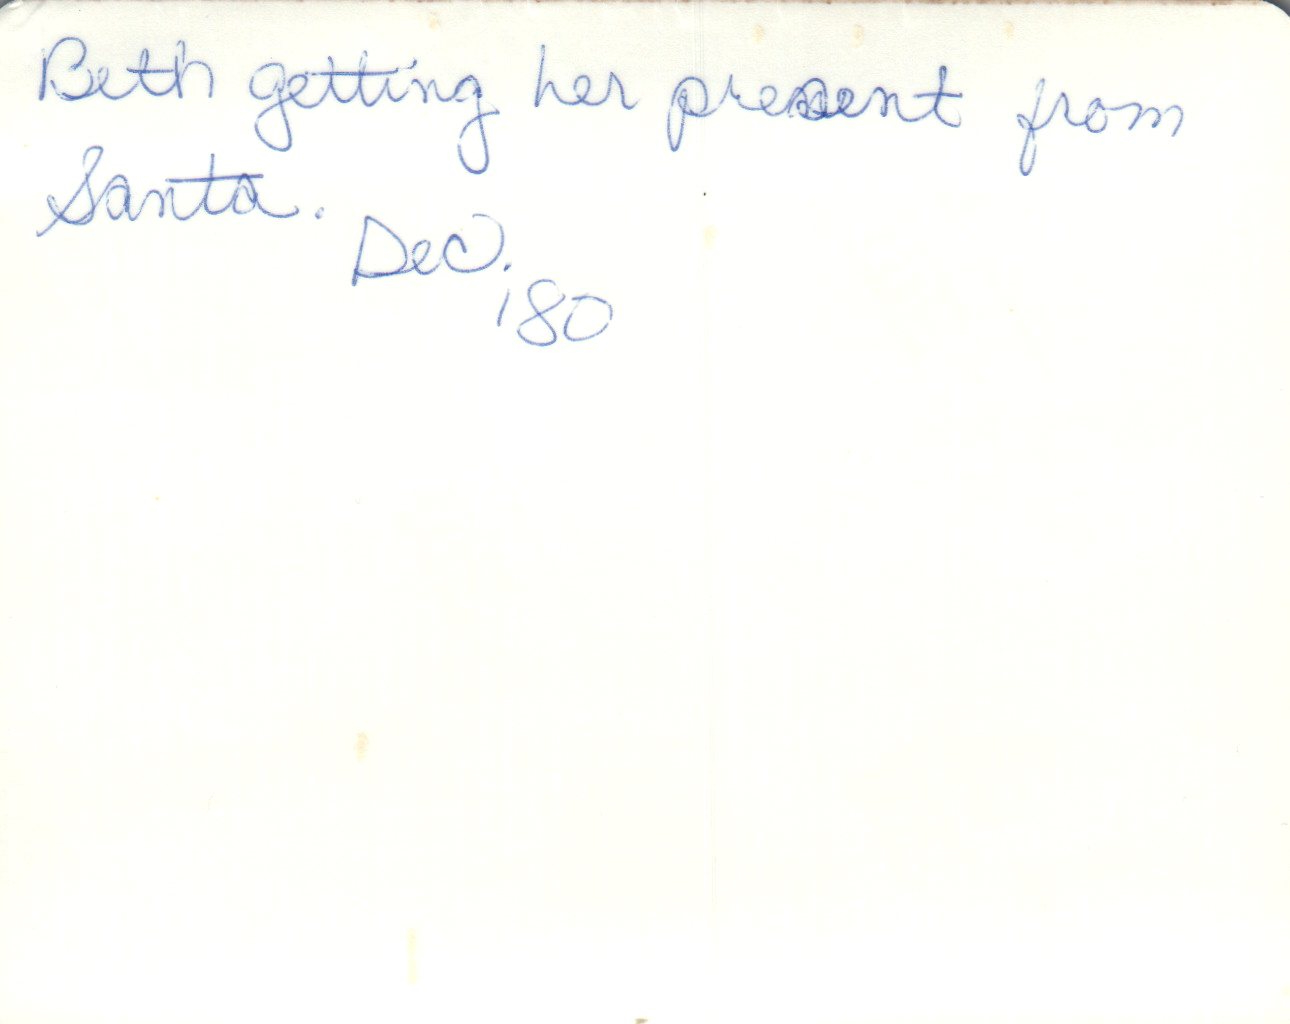 Beth getting her present from
Santa.
Dec.
'80